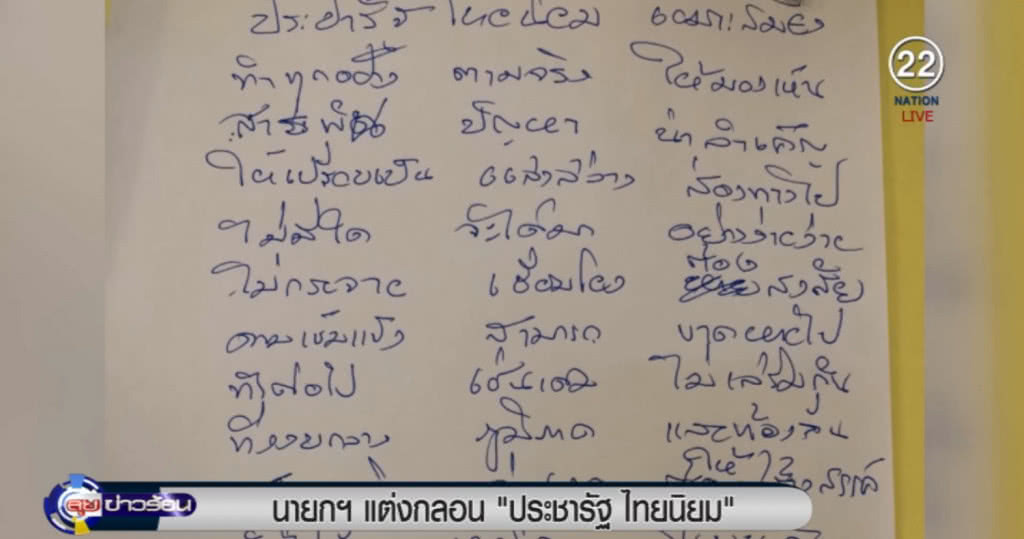 ประชารัฐ ไทยนิยม
22
NATION
LIVE
ทำทุกอย่าง ตามจริง ให้มองเห็น
สารพัน ปัญหา น่าลำเค็ญ
ให้เปรียบเป็น แสงสว่าง ส่องทางไป
ไม่มีใด จะได้มา อย่างง่ายง่าย
ไม่กระจาย เชื่อมโยง ต้องสงสัย
ความเข้มแข็ง สามารถ ขาดหายไป
ทำต่อไป เช่นเดิม ไม่เริ่มกัน
ภูมิภาค และท้องถิ่น
ลุยข่าวร้อน
นายกฯ แต่งกลอน "ประชารัฐ ไทยนิยม"